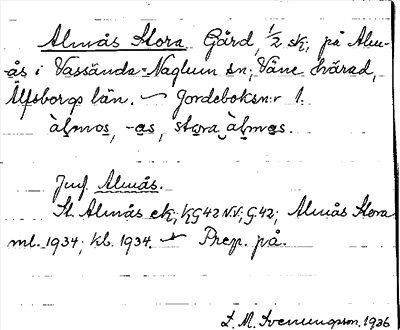 Almås Stora Gård, 1/2 sk; på Alm-
ås i Vassända-Naglum sn; Väne härad,
Älfsborgs län. — Jordeboksn:r 1.
àlmos, -as, stora àlmas.
Jmf. Almås.
St. Almås ek; kG42NV; G42; Almås Stora
ml. 1934; kb. 1934. — Prep. på.
L. M. Svenungsson, 1936